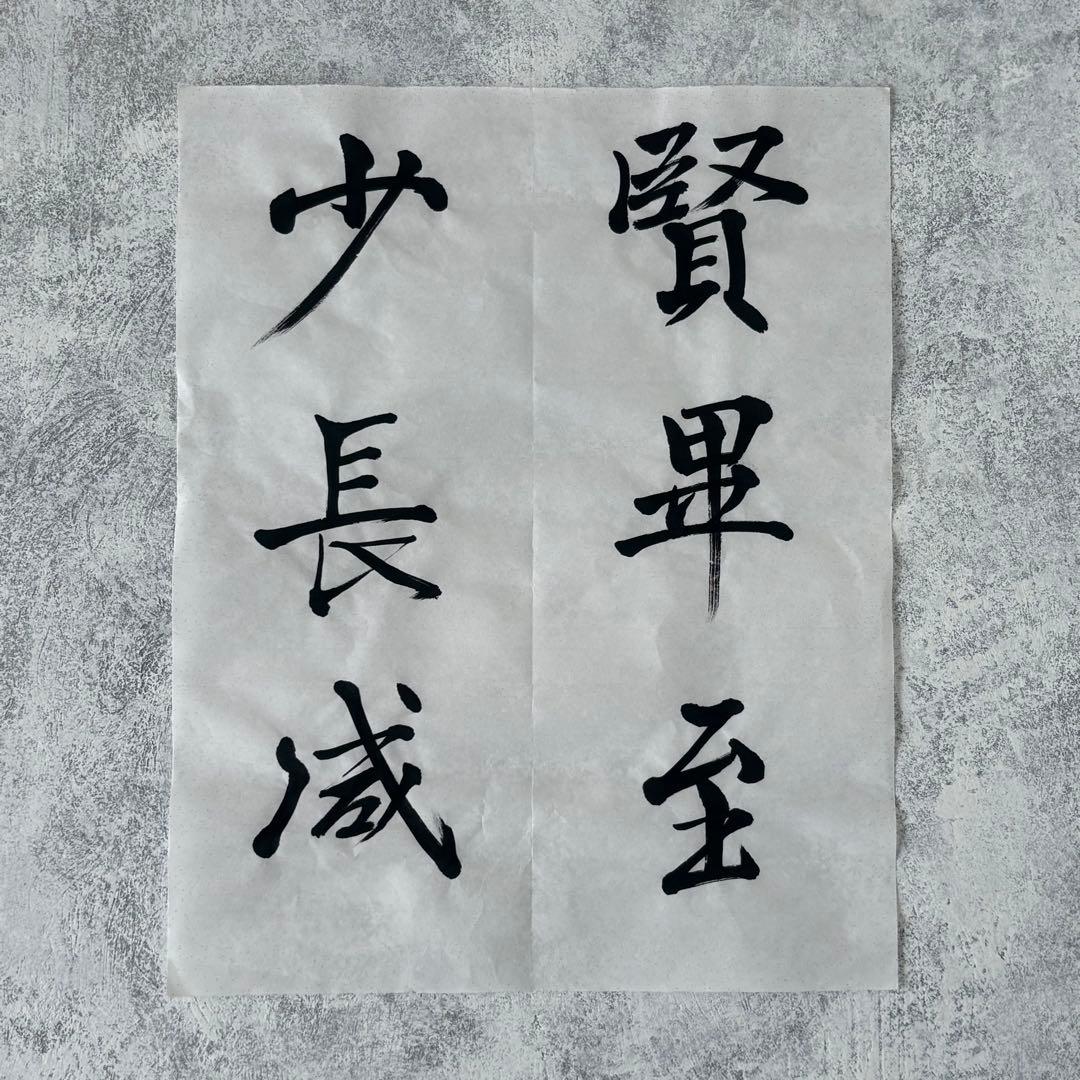 賢畢至
少長咸